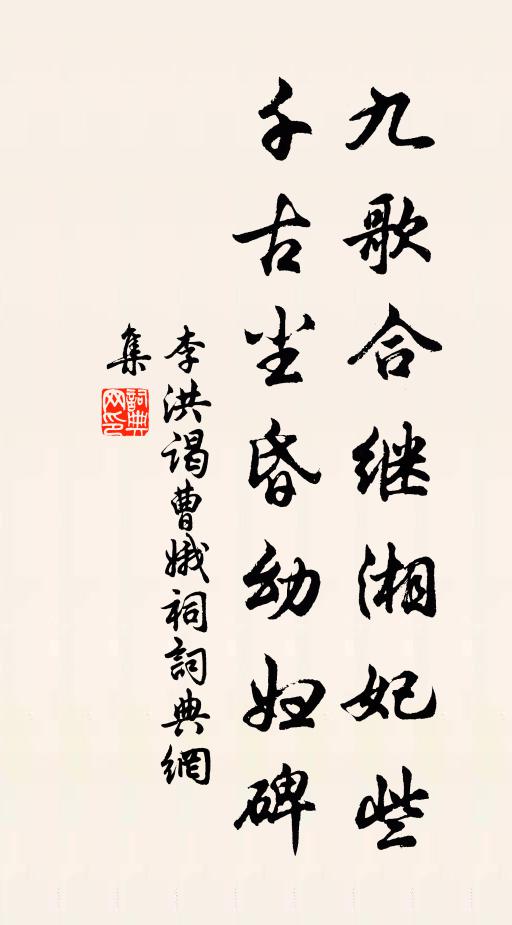 九歌合继湘妃些
千古尘昏幼妇碑
李洪谒曹娥祠詞典網
集
詞典网印